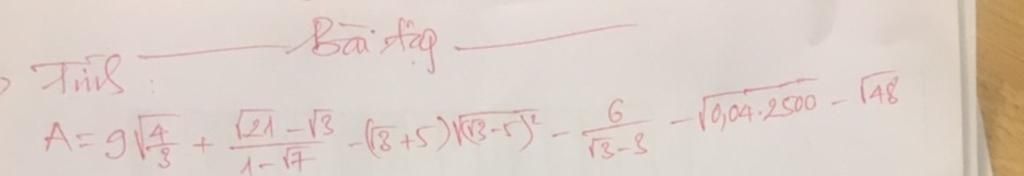 Bài tập
Tính :
A = 9√(4/3) + (√21 - √3)/(1 - √7) - (√3 + 5)√((√3 - 5)²) - 6/(√3 - 3) - √(0,04 . 2500) - √48